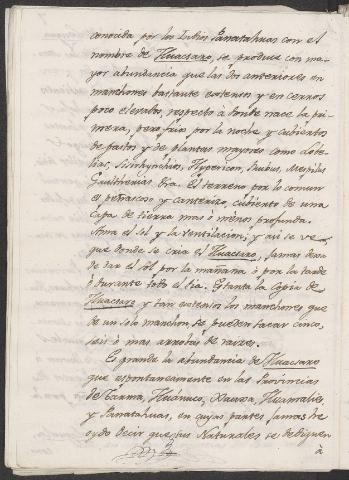 conocida por los Indios Panatahuas con el
nombre de Huacsaro, se produce con ma-
yor abundancia que las dos anteriores en
manchones bastante extensos y en cerros
poco elevados, respecto à donde nace la pri-
mera, pero frios por la noche y cubiertos
de pastos y de plantas mayores como Lobe-
lias, Sisirhynchios, Hypericon, Rubus, Mespilus
Gaultherias, &a. El terreno por lo comun
es peñascoso y canterizo, cubierto de una
capa de tierra mas ò menos profunda.
Ama el sol y la ventilacion; y asi se ve
que donde se cria el Huacsaro, jamas dexa
de dar el sol por la mañana ò por la tarde
ò durante todo el dia. Es tanta la copia de
Huacsaro y tan extensos los manchones que
de un solo manchon se pueden sacar cinco,
seis ò mas arrobas de raices.
Es grande la abundancia de Huacsaro
que espontaneamente en las Provincias
de Tarma, Huanuco, Xauxa, Huamalies,
y Panatahuas, en cuyas partes jamas he
oydo decir que sus Naturales se dediquen
à